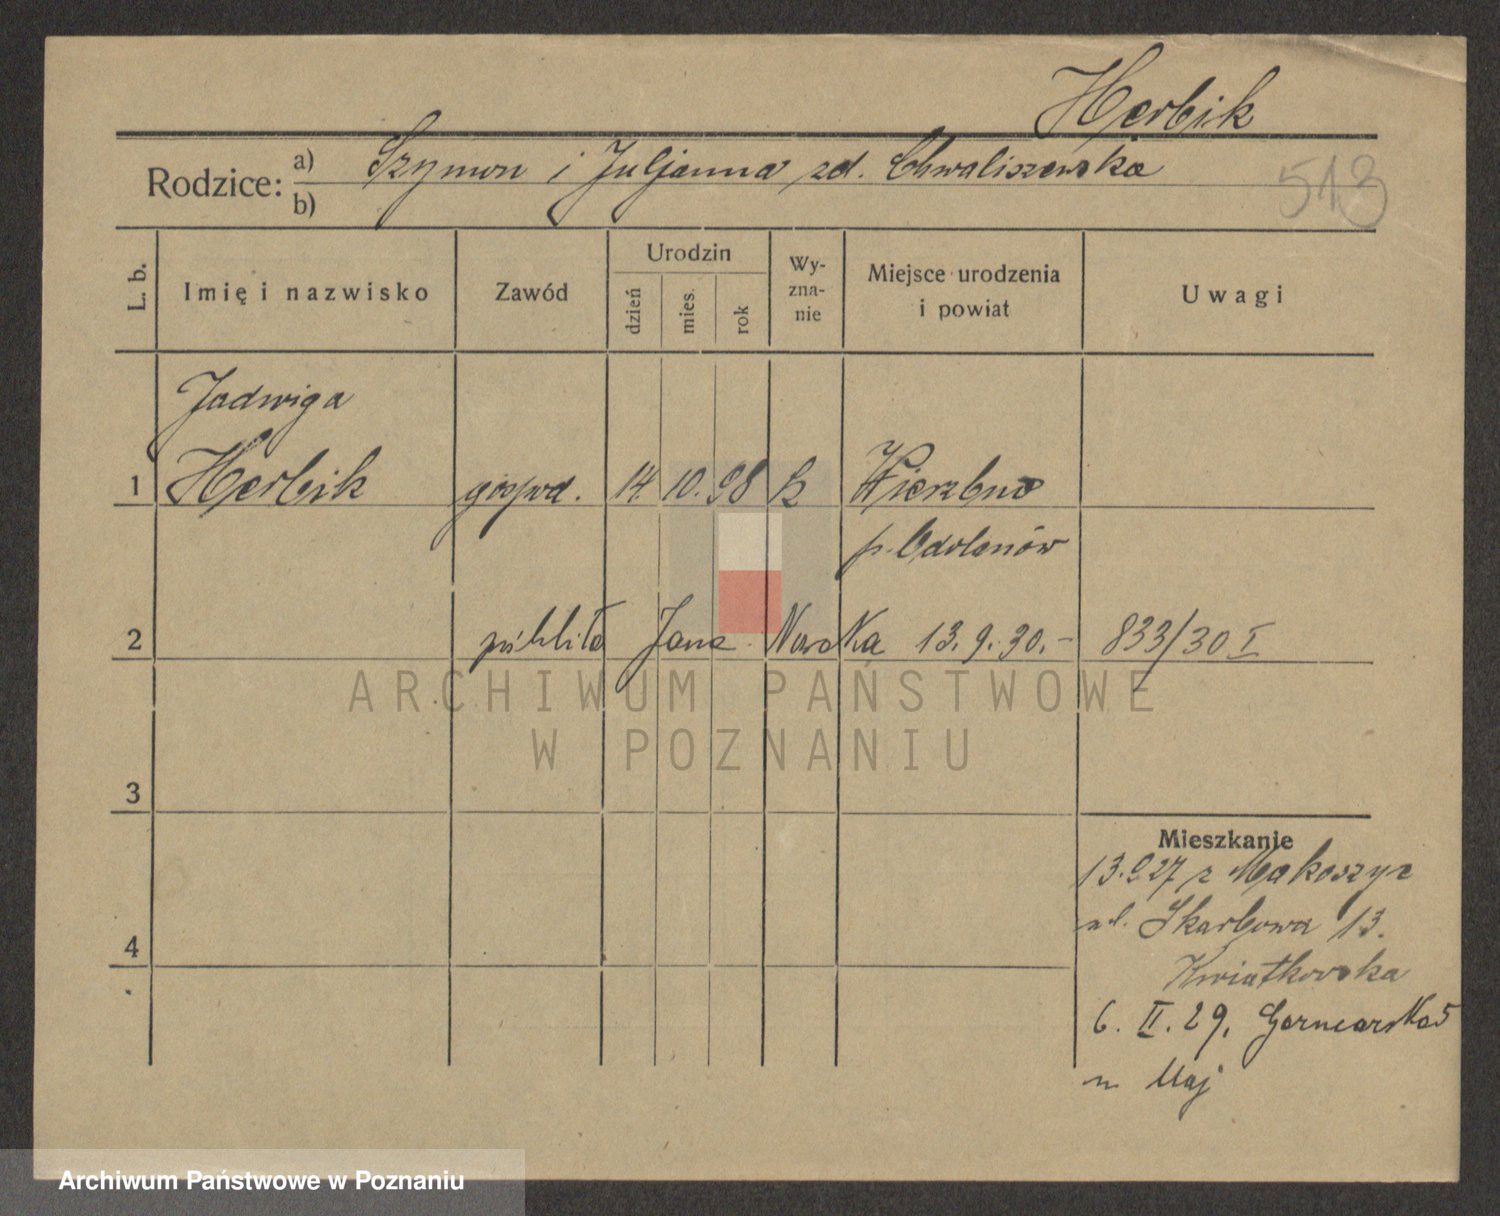 Herbik
Rodzice: a) Szymon i Juljanna zd. Chwaliszewska
b)
513
L. b.
Imię i nazwisko
Zawód
Urodzin
dzień
mies.
rok
Wy-
zna-
nie
Miejsce urodzenia
i powiat
Uwagi
Jadwiga
1 Herbik gospod. 14 10. 98 k Wierzbno
p. Odolanów
2 Jana 13. 9. 30. - 833/30 I
ARCHIWUM PAŃSTWOWE
W POZNANIU
3
Mieszkanie
13.9.27 z Makoszyc
ul. Skarbowa 13.
4
Kwiatkowska
6. II. 29. Garncarska 5
u Maj
Archiwum Państwowe w Poznaniu